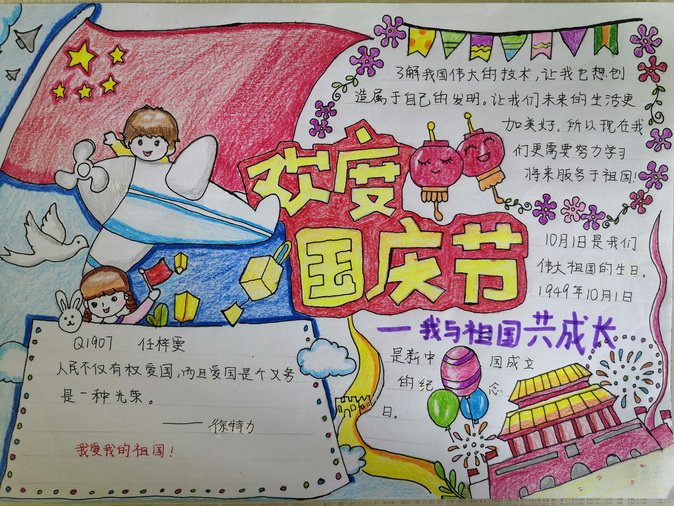 了解我国伟大的技术,让我也想创
造属于自己的发明。让我们未来的生活更
加美好,所以现在我
们更需要努力学习
将来服务于祖国!
欢度
国庆节
—我与祖国共成长
10月1日是我们
伟大祖国的生日。
1949年10月1日
是新中 国成立
的纪 念
日。
Q1907 任梓雯
人民不仅有权爱国,而且爱国是个义务
是一种光荣。
——徐特力
我爱我的祖国!